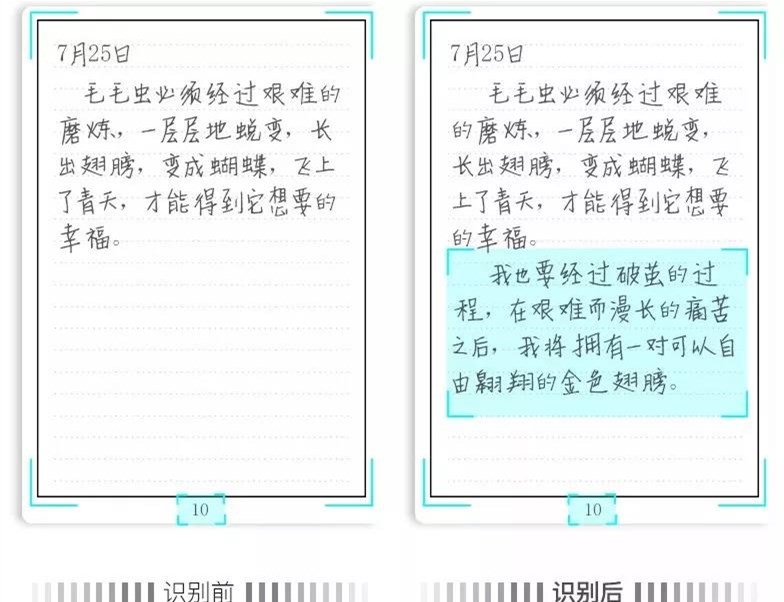 7月25日
毛毛虫必须经过艰难的
磨炼，一层层地蜕变，长
出翅膀，变成蝴蝶，飞上
了青天，才能得到它想要的
幸福。
10
识别前
7月25日
毛毛虫必须经过艰难
的磨炼，一层层地蜕变，
长出翅膀，变成蝴蝶，飞
上了青天，才能得到它想要
的幸福。
我也要经过破茧的过
程，在艰难而漫长的痛苦
之后，我将拥有一对可以自
由翱翔的金色翅膀。
10
识别后